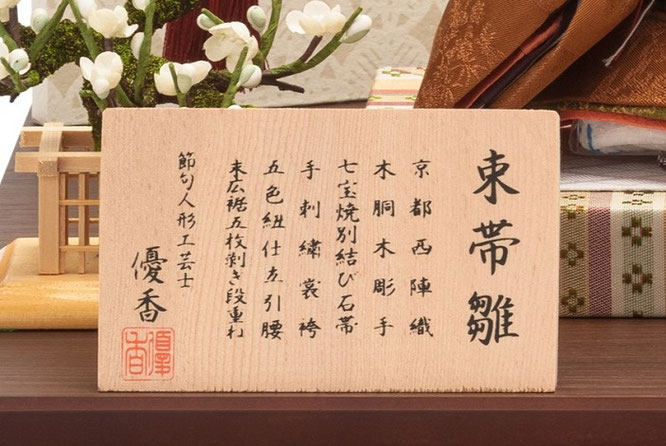 束帯雛
京都西陣織
木胴木彫手
七宝焼別結び石帯
手刺繍裳袴
五色紐仕立引腰
末広裾五枚剥き段重ね
節句人形工芸士
優香
優香